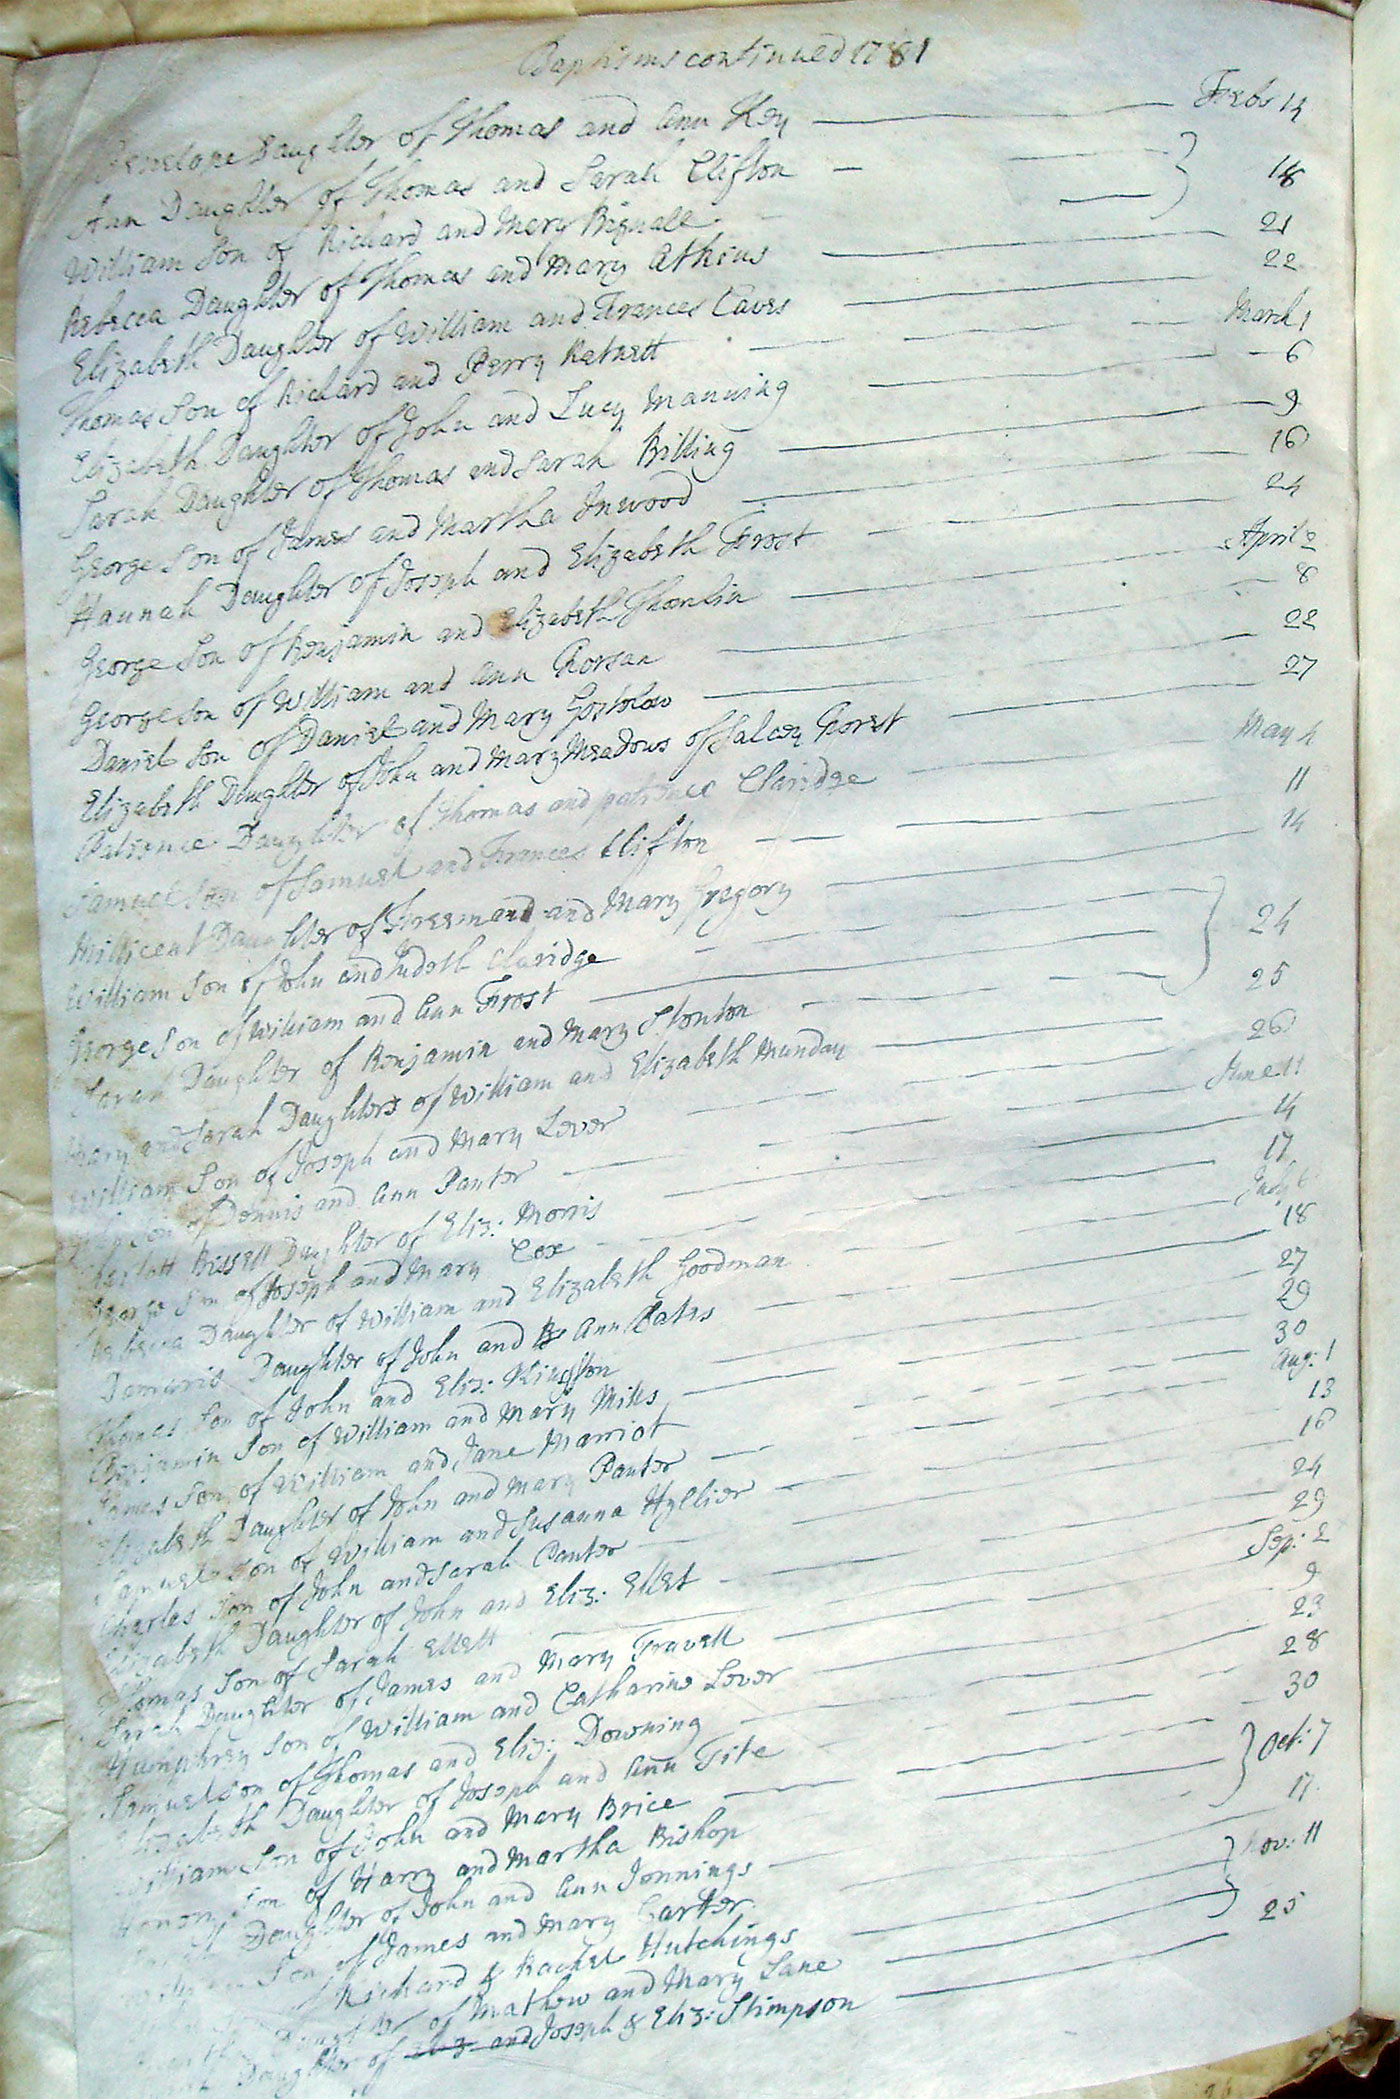 Baptisms continued 1781
Penelope Daughter of Thomas and Ann Key Feb: 14
Ann Daughter of Thomas and Sarah Clifton
William Son of Richard and Mery Bignall 18
Rebecca Daughter of Thomas and Mary Atkins 21
Elizabeth Daughter of William and Frances Caves 22
Thomas Son of Richard and Perry March 1
Elizabeth Daughter of John and Lucy Manning 6
Sarah Daughter of Thomas and Sarah Billing 9
George Son of James and Martha Inwood 16
Hannah Daughter of Joseph and Elizabeth Frost 24
George Son of Benjamin and Elizabeth April 2
George Son of William and Ann 8
Daniel Son of Daniel and Mary Gostelow 22
Elizabeth Daughter of John and Mary Meadows of Salcey Forest 27
Patience Daughter of Thomas and patience Claridge May 4
Samuel Son of Samuel and Frances Clifton 11
Millicent Daughter of Freeman and Mary Gregory 14
William Son of John and Judeth Claridge
George Son of William and Ann Frost 24
Sarah Daughter of Benjamin and Mary Stonton 25
Mary and Sarah Daughters of William and Elizabeth Munday 26
William Son of Joseph and Mary Lever June 11
Son of Dennis and Ann Panter 14
Charlott Bissell Daughter of Eliz: Morris 17
George Son of Joseph and Mary Cox July 6
Rebecca Daughter of William and Elizabeth Goodman 18
Damaris Daughter of John and Ann Pates 27
Thomas Son of John and Eliz: Kingston 29
Benjamin Son of William and Mary Mills 30
James Son of William and Jane Marriot Aug: 1
Elizabeth Daughter of John and Mary Panter 13
Samuel Son of William and Susanna Hyllier 16
Charles Son of John and Sarah Panter 24
Elizabeth Daughter of John and Eliz: Ellet 29
Thomas Son of Sarah Ellett Sep: 2
Sarah Daughter of James and Mary Travell 9
Humphrey Son of William and Catharine Lever 23
Samuel Son of Thomas and Eliz: Downing 28
Elizabeth Daughter of Joseph and Ann Tite 30
William Son of John and Mary Brice
Henery Son of Harry and Martha Bishop Oct: 7
Daughter of John and Ann Jennings 17
William Son of James and Mary Carter
of Richard & Rachel Hutchings Nov: 11
Daughter of Mathew and Mary Lane
Daughter of Eliz: and Joseph & Eliz: Stimpson 25